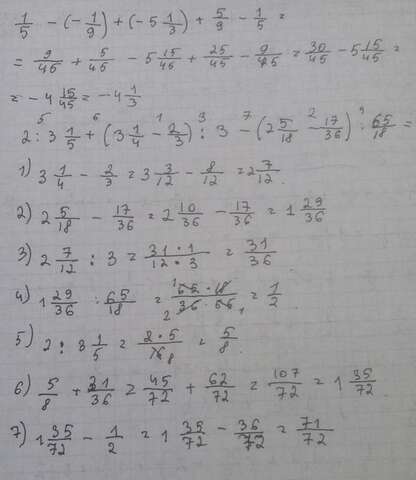 1/5 - (-1/9) + (-5 1/3) + 5/9 - 1/5 =
= 9/45 + 5/45 - 5 15/45 + 25/45 - 9/45 = 30/45 - 5 15/45 =
= -4 15/45 = -4 1/3
5 6 1 3 7 2 4
2 : 3 1/5 + (3 1/4 - 2/3) : 3 - (2 5/18 - 17/36) : 65/18 =
1) 3 1/4 - 2/3 = 3 3/12 - 8/12 = 2 7/12.
2) 2 5/18 - 17/36 = 2 10/36 - 17/36 = 1 29/36
3) 2 7/12 : 3 = 31·1/12·3 = 31/36
4) 1 29/36 : 65/18 = 65·18/36·65 = 1/2
5) 2 : 3 1/5 = 2·5/16 8 = 5/8.
6) 5/8 + 31/36 = 45/72 + 62/72 = 107/72 = 1 35/72
7) 1 35/72 - 1/2 = 1 35/72 - 36/72 = 71/72